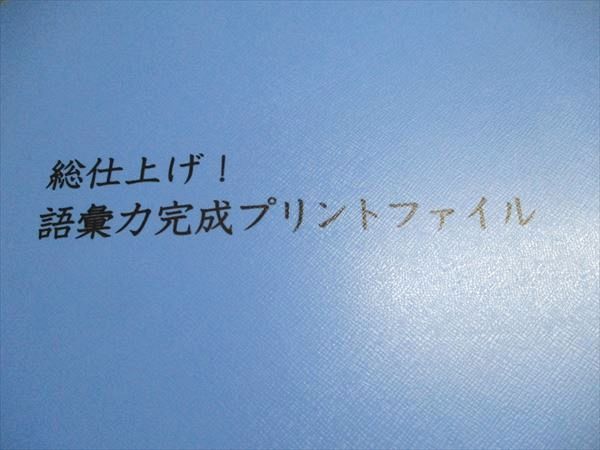 総仕上げ！
語彙力完成プリントファイル